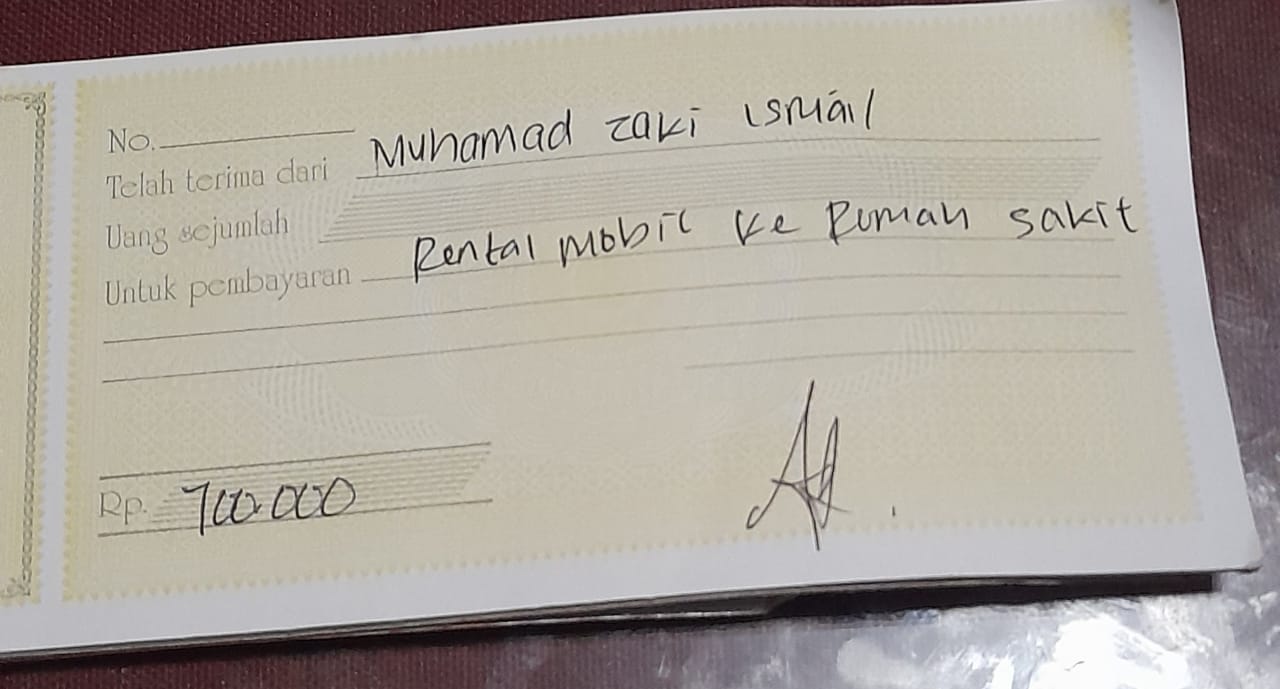 No.
Telah terima dari Muhamad zaki ismail
Uang sejumlah
Untuk pembayaran Rental mobil ke Rumah sakit
Rp. 700.000